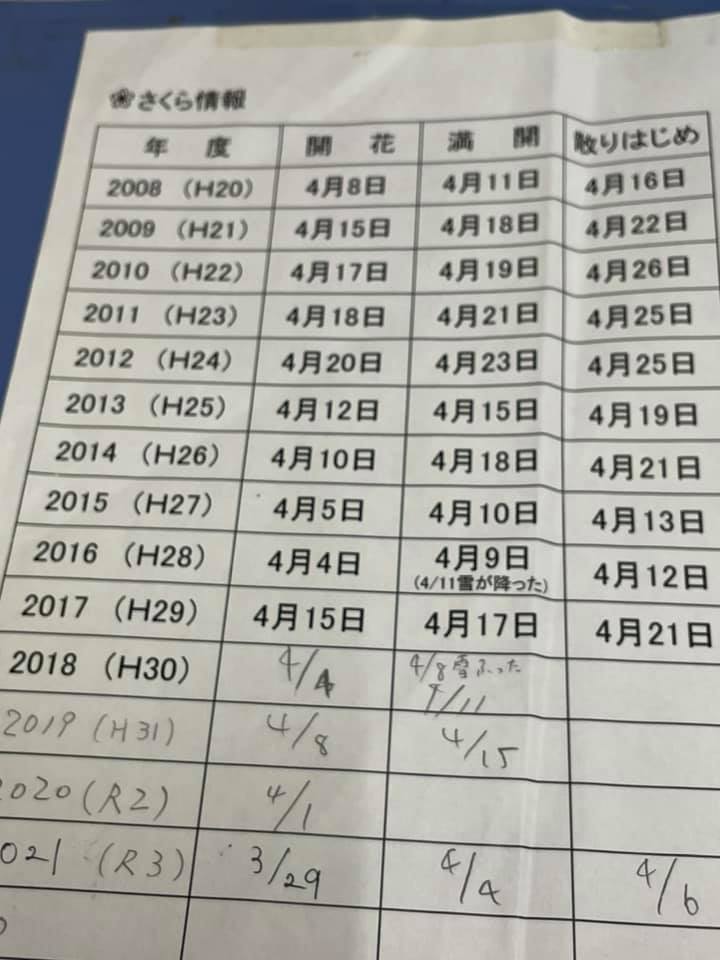 ❀さくら情報
年 度 開 花 満 開 散りはじめ
2008 (H20) 4月8日 4月11日 4月16日
2009 (H21) 4月15日 4月18日 4月22日
2010 (H22) 4月17日 4月19日 4月26日
2011 (H23) 4月18日 4月21日 4月25日
2012 (H24) 4月20日 4月23日 4月25日
2013 (H25) 4月12日 4月15日 4月19日
2014 (H26) 4月10日 4月18日 4月21日
2015 (H27) 4月5日 4月10日 4月13日
2016 (H28) 4月4日 4月9日 4月12日
(4/11雪が降った)
2017 (H29) 4月15日 4月17日 4月21日
2018 (H30) 4/4 4/8雪ふった
4/11
2019 (H31) 4/8 4/15
2020 (R2) 4/1
021 (R3) 3/29 4/4 4/6